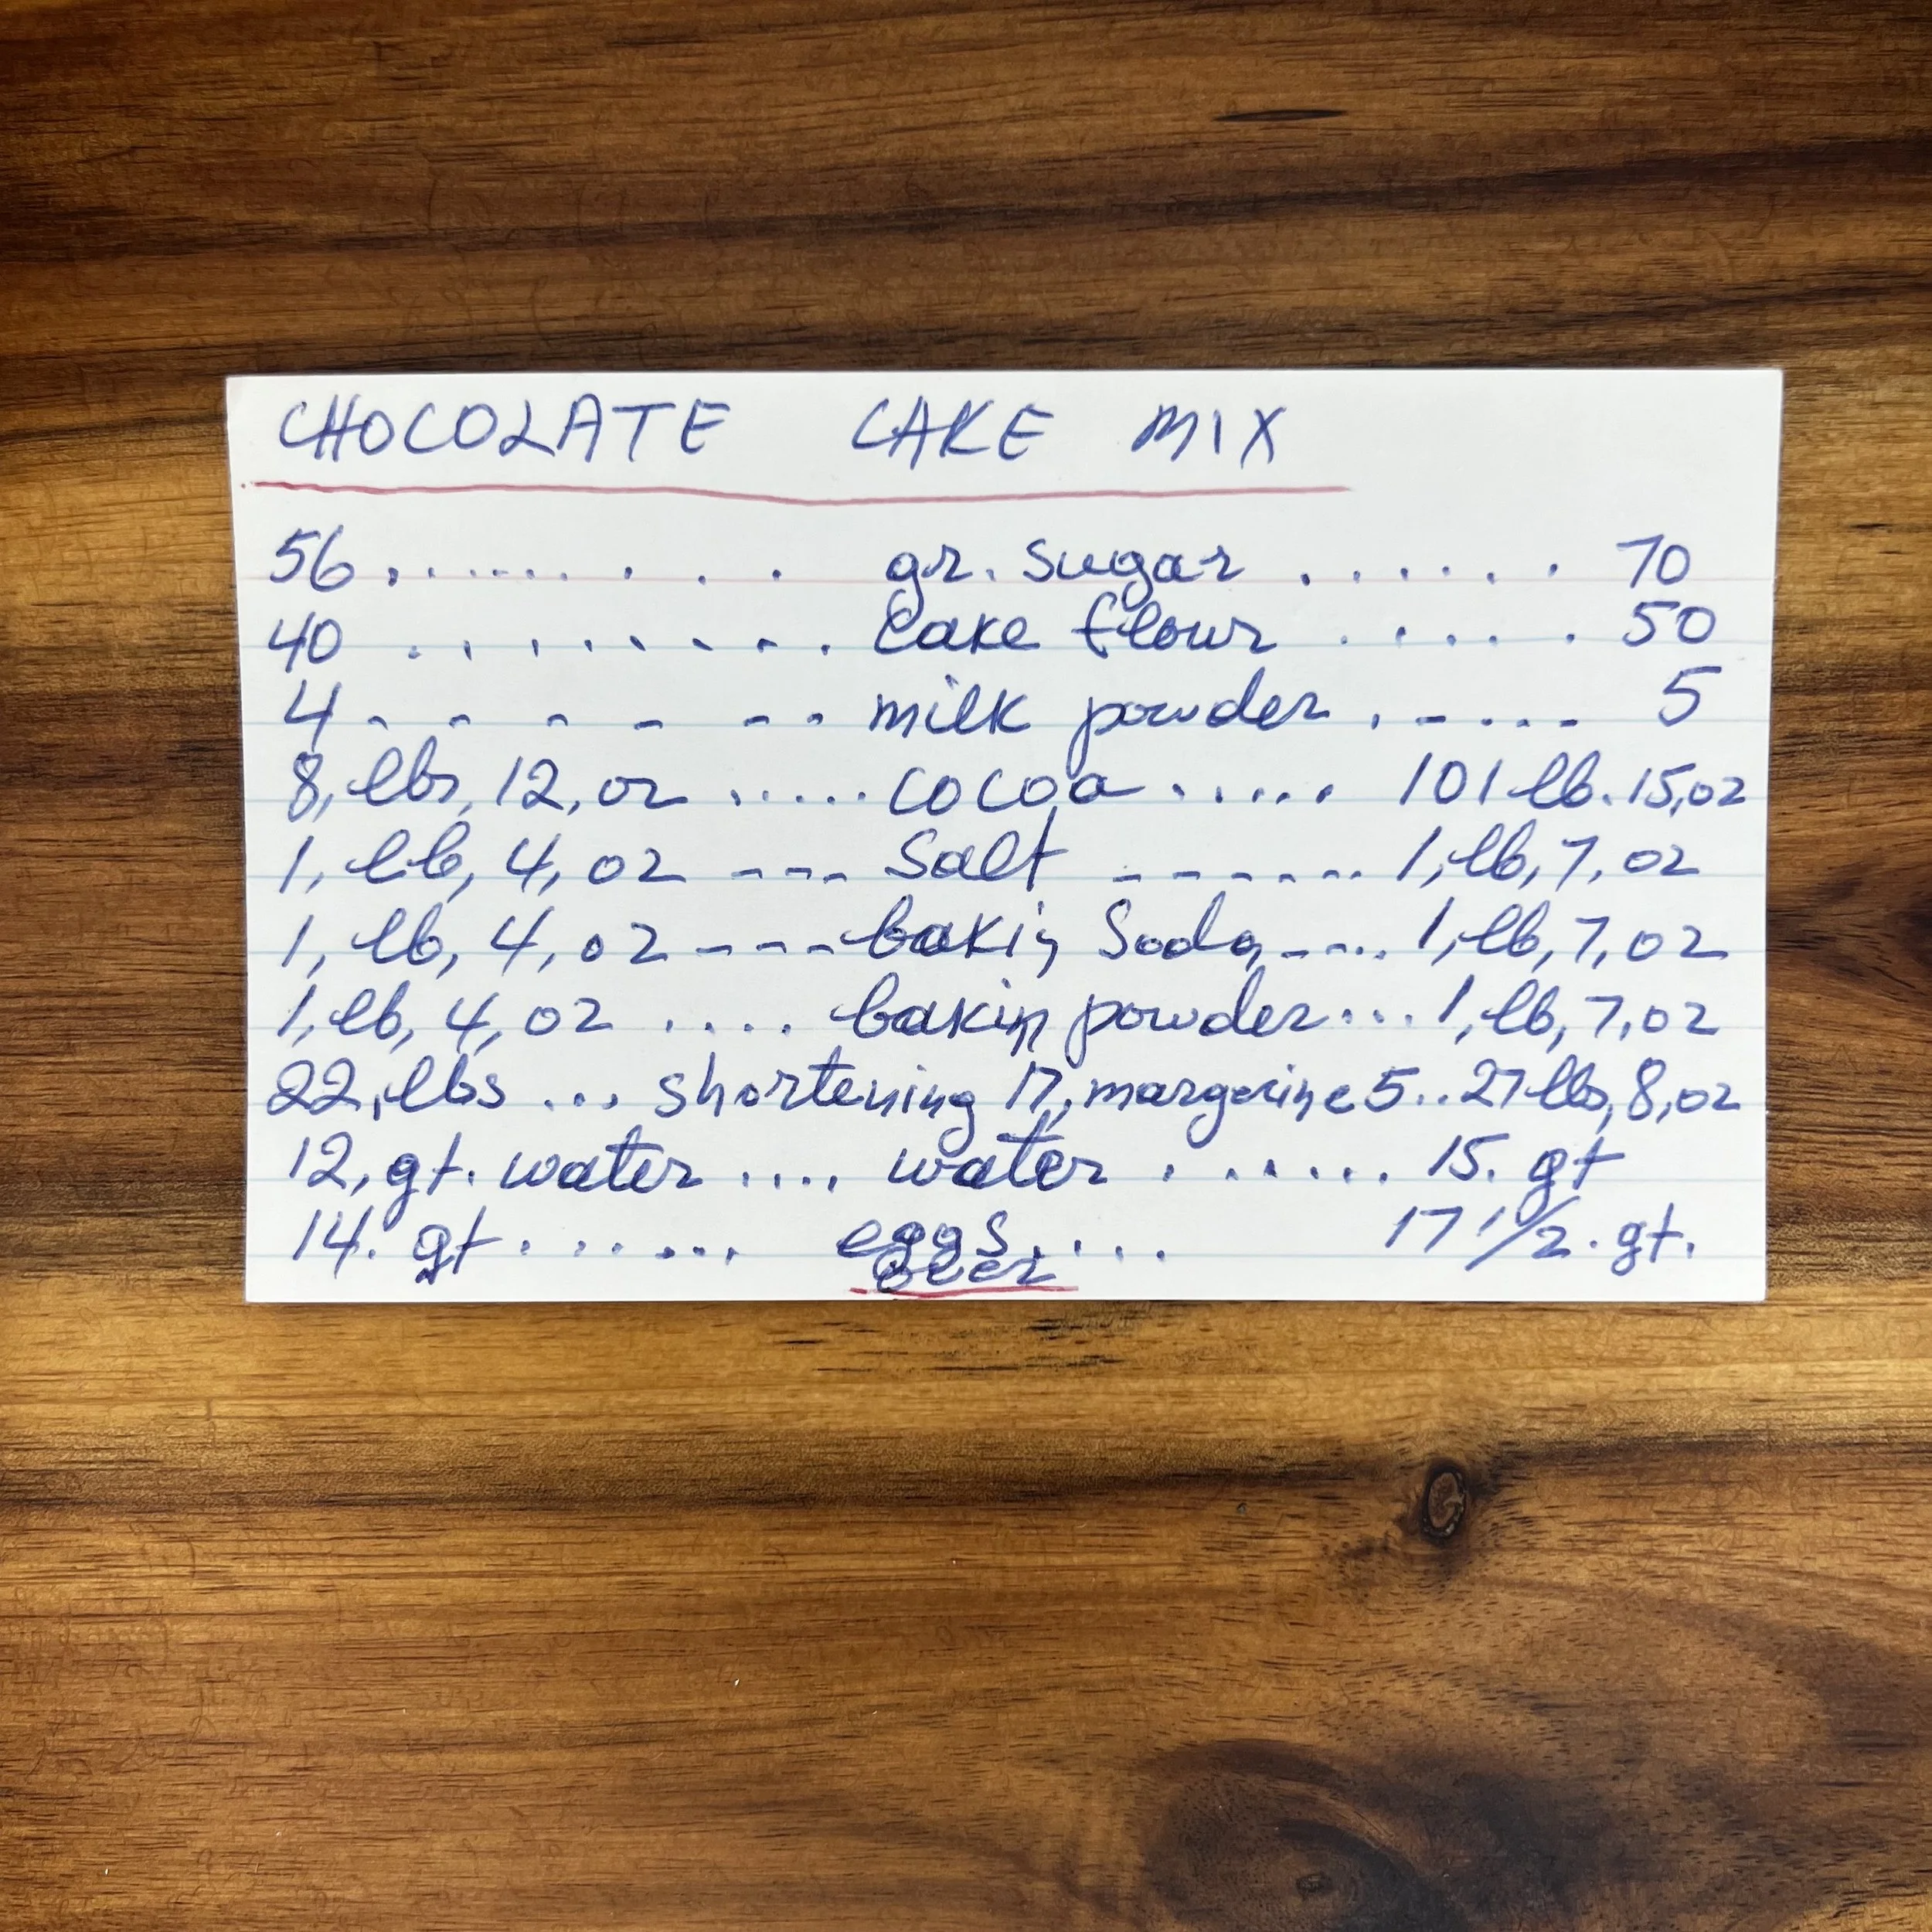 CHOCOLATE CAKE MIX
56 ......... gr. sugar ...... 70
40 ......... Cake flour ..... 50
4 - - - - - - milk powder . - . - . - 5
8, lbs, 12, oz ..... cocoa ..... 101 lb. 15, oz
1, lb, 4, oz --- Salt ------.. 1, lb, 7, oz
1, lb, 4, oz --- bakig Soda --... 1, lb, 7, oz
1, lb, 4, oz .... bakin powder ... 1, lb, 7, oz
22, lbs ... shortening 17, margarine 5 .. 27 lbs, 8, oz
12, gt. water .... water ....... 15. gt
14. gt ....... eggs .... 17 1/2. gt.
over